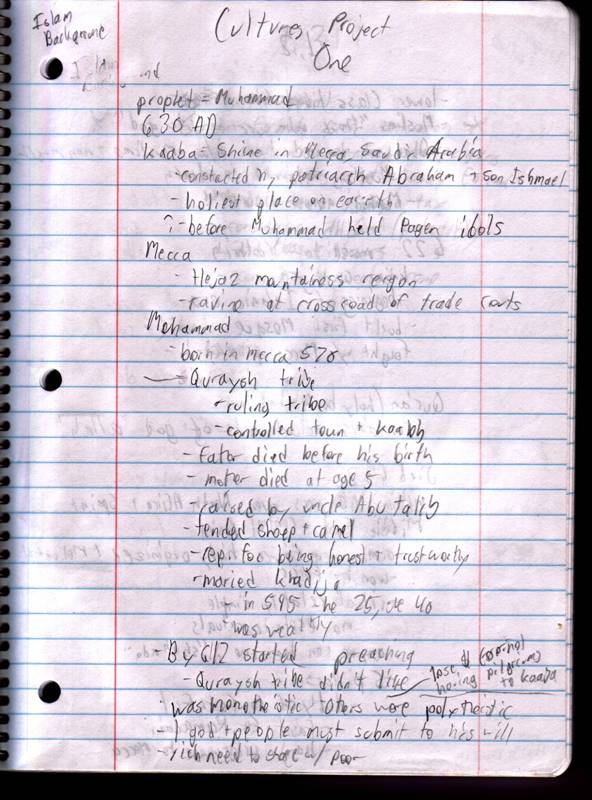 Islam
Background
Cultures Project
One
prophet = Muhammad
630 AD
Kaaba = Shrine in Mecca Saudi Arabia
- constructed by patriarch Abraham + son Ishmael
- holiest place on earth
? - before Muhammad held Pagen idols
Mecca
- Hejaz mountainoss reigon
- ravine at crossroad of trade routs
Mohammad
- born in mecca 570
- Quraysh tribe
- ruling tribe
- controlled town + kaabh
- Fater died before his birth
- moter died at age 5
- raised by uncle Abu talib
- tended sheep + camel
- rep for being honest + trustworthy
- maried khadija
- in 595 he 25, 40
was wealthy
- By 612 started preaching
- Quraysh tribe didn't like
lose $ having pilgrims
to kaaba
- was monotheistic others were polytheistic
- 1 god + people must submit to his will
- rich need to share w/ poor